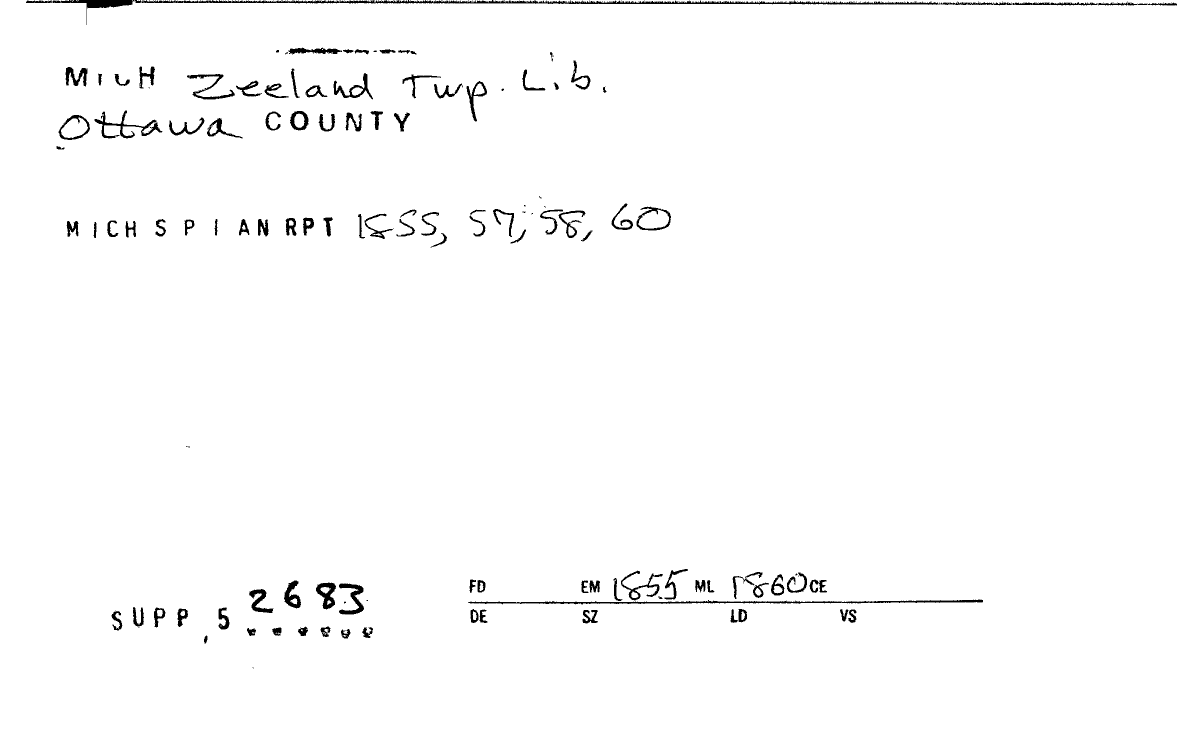 MICH Zeeland Twp. Lib.
Ottawa COUNTY
MICH SPI AN RPT 1855, 57, 58, 60
SUPP, 5 2683
FD EM 1855 ML 1860 CE
DE SZ LD VS